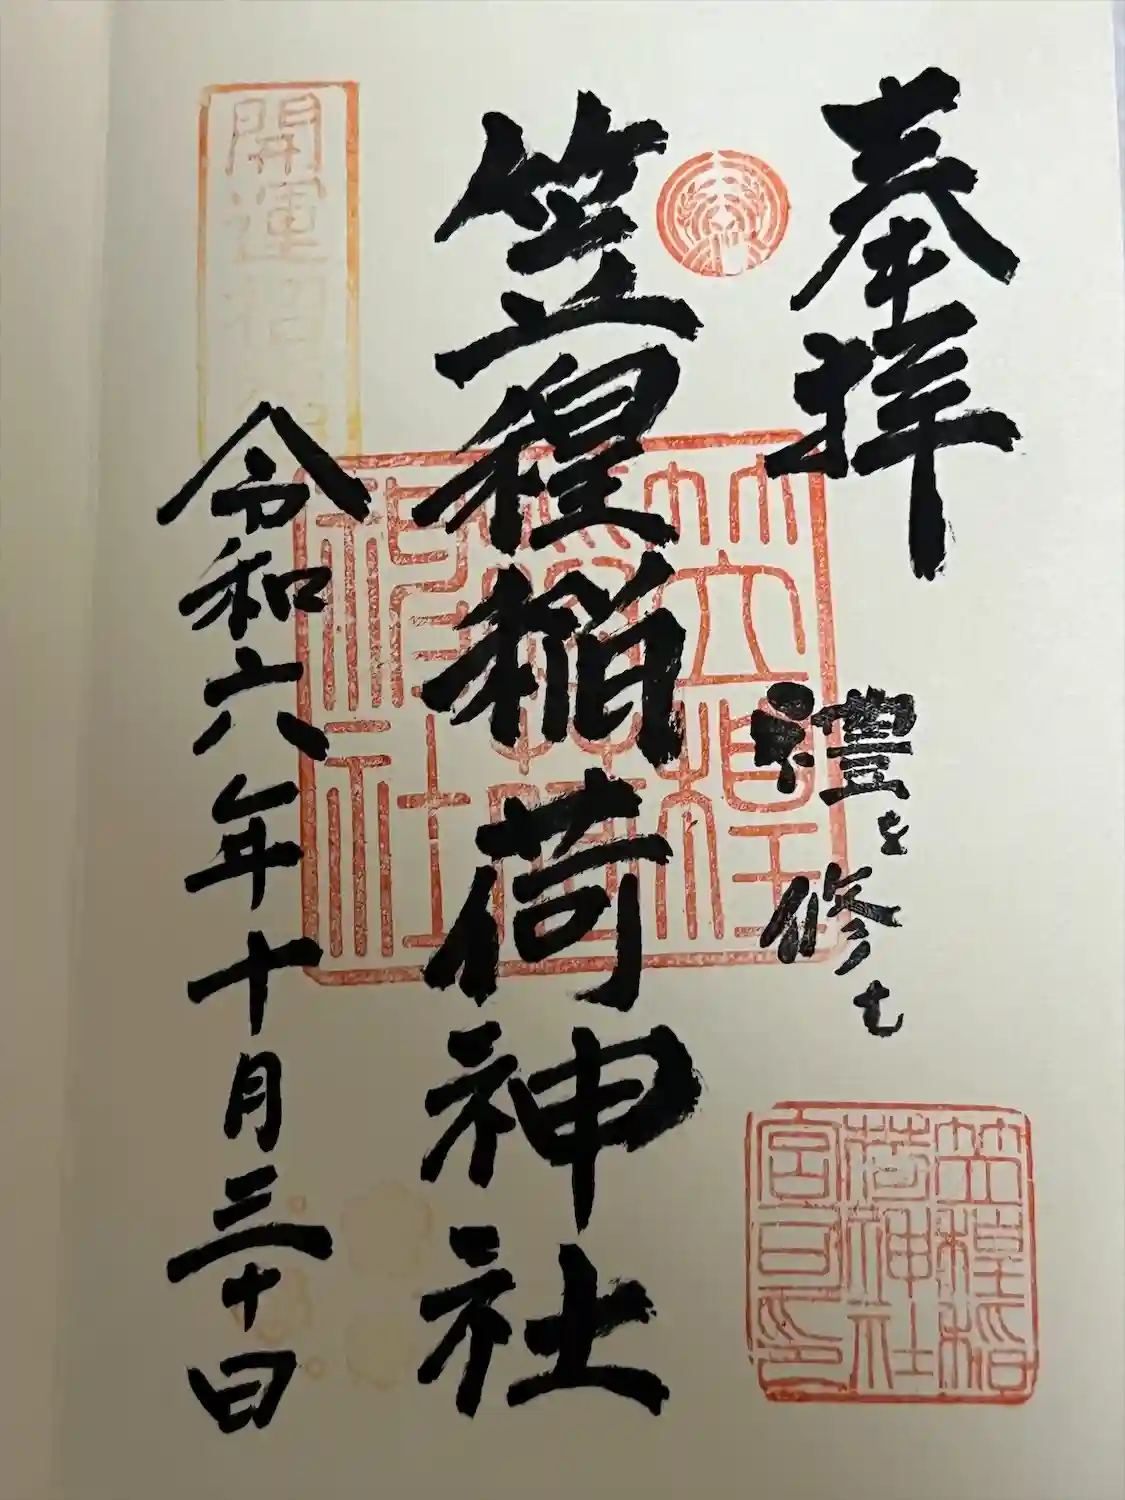 奉拝
禮を修む
笠䅣稲
荷神社
宮司印
笠䅣稲荷神社
笠䅣
稲荷
神社
開運招福
令和六年十月三十日